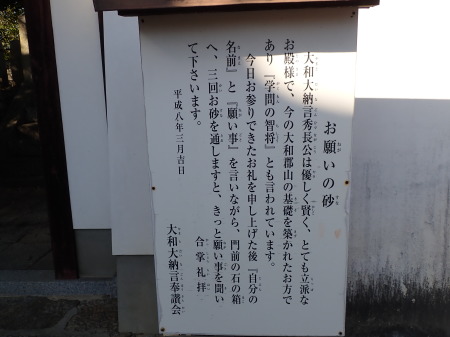 お願いの砂
大和大納言秀長公は優しく賢く、とても立派な
お殿様で、今の大和郡山の基礎を築かれたお方で
あり『学問の智将』とも言われています。
今日お参りできたお礼を申し上げた後『自分の
名前』と『願い事』を言いながら、門前の石の箱
へ、三回お砂を通しますと、きっと願い事を聞い
て下さいます。
合掌礼拝
平成八年三月吉日
大和大納言奉讃会